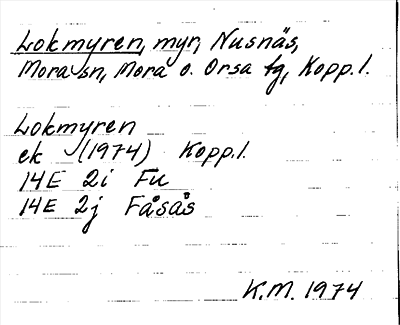 Lokmyren, myr, Nusnäs,
Mora sn, Mora o. Orsa tg, Kopp. l.
Lokmyren
ek (1974) Kopp. l.
14E 2i Fu
14E 2j Fåsås
K.M. 1974